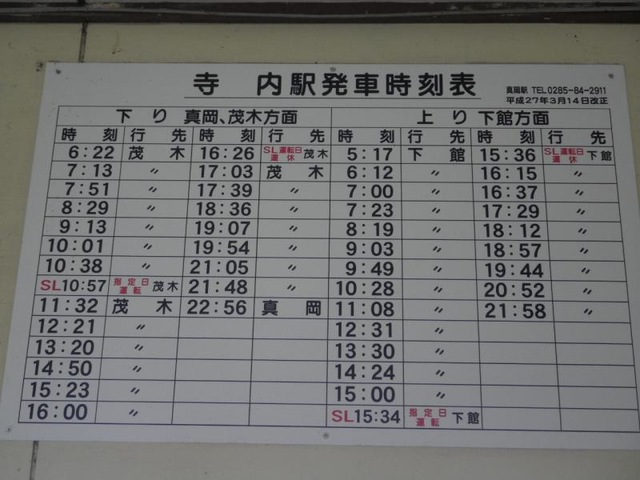 寺 内駅発車時刻表
真岡駅 TEL.0285-84-2911
平成27年3月14日改正
下り 真岡、茂木方面 上り 下館方面
時 刻 行 先 時 刻 行 先 時 刻 行 先 時 刻 行 先
6:22 茂 木 16:26 SL運転日運休 茂木 5:17 下 館 15:36 SL運転日運休 下館
7:13 〃 17:03 茂 木 6:12 〃 16:15 〃
7:51 〃 17:39 〃 7:00 〃 16:37 〃
8:29 〃 18:36 〃 7:23 〃 17:29 〃
9:13 〃 19:07 〃 8:19 〃 18:12 〃
10:01 〃 19:54 〃 9:03 〃 18:57 〃
10:38 〃 21:05 〃 9:49 〃 19:44 〃
SL10:57 指定日運転 茂木 21:48 〃 10:28 〃 20:52 〃
11:32 茂 木 22:56 真 岡 11:08 〃 21:58 〃
12:21 〃 12:31 〃
13:20 〃 13:30 〃
14:50 〃 14:24 〃
15:23 〃 15:00 〃
16:00 〃 SL15:34 指定日運転 下館